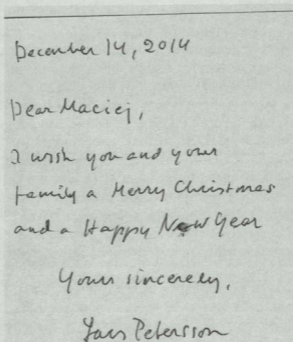 December 14, 2014
Dear Maciej,
I wish you and your
family a Merry Christmas
and a Happy New Year
Yours sincerely,
Lars Petersson